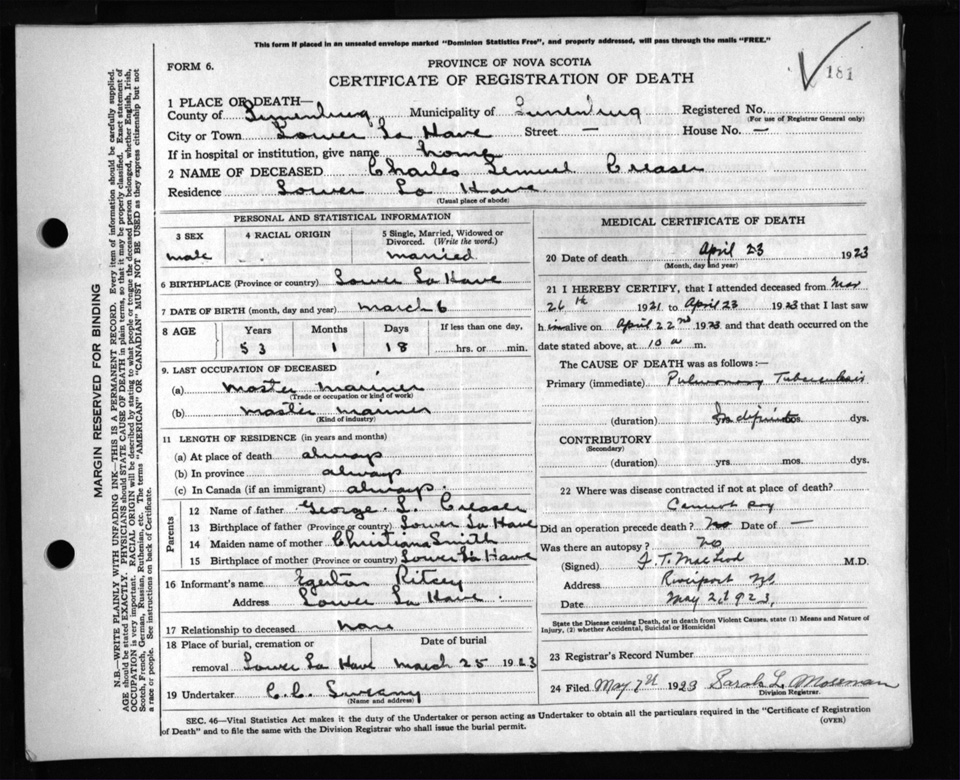 This form if placed in an unsealed envelope marked "Dominion Statistics Free", and properly addressed, will pass through the mails "FREE."
FORM 6.
PROVINCE OF NOVA SCOTIA
CERTIFICATE OF REGISTRATION OF DEATH
181
1 PLACE OF DEATH—
County of Lunenburg Municipality of Lunenburg Registered No.
(For use of Registrar General only)
City or Town Lower La Have Street — House No. —
If in hospital or institution, give name home
2 NAME OF DECEASED Charles Lemuel Creaser
Residence Lower La Have
(Usual place of abode)
PERSONAL AND STATISTICAL INFORMATION
3 SEX 4 RACIAL ORIGIN 5 Single, Married, Widowed or Divorced. (Write the word.)
male married
6 BIRTHPLACE (Province or country) Lower La Have
7 DATE OF BIRTH (month, day and year) March 6
8 AGE Years Months Days If less than one day,
53 1 18 hrs. or min.
9. LAST OCCUPATION OF DECEASED
(a) master mariner
(Trade or occupation or kind of work)
(b) master mariner
(Kind of industry)
11 LENGTH OF RESIDENCE (in years and months)
(a) At place of death always
(b) In province always
(c) In Canada (if an immigrant) always
Parents
12 Name of father George L. Creaser
13 Birthplace of father (Province or country) Lower La Have
14 Maiden name of mother Christiana Smith
15 Birthplace of mother (Province or country) Lower La Have
16 Informant's name Egerton Ritcey
Address Lower La Have
17 Relationship to deceased none
18 Place of burial, cremation or Date of burial
removal Lower La Have March 25 1923
19 Undertaker C. C.
(Name and address)
MEDICAL CERTIFICATE OF DEATH
20 Date of death April 23 1923
(Month, day and year)
21 I HEREBY CERTIFY, that I attended deceased from Mar
26th 1921 to April 23 1923 that I last saw
him alive on April 22nd 1923 and that death occurred on the
date stated above, at 10 a m.
The CAUSE OF DEATH was as follows:—
Primary (immediate) Pulmonary Tuberculosis
(duration) Indefinite dys.
CONTRIBUTORY
(Secondary)
(duration) yrs. mos. dys.
22 Where was disease contracted if not at place of death?
Cannot say
Did an operation precede death? No Date of —
Was there an autopsy? No
(Signed) T. MacLeod M.D.
Address Riverport NS
Date May 2d 1923,
State the Disease causing Death, or in death from Violent Causes, state (1) Means and Nature of Injury, (2) whether Accidental, Suicidal or Homicidal
23 Registrar's Record Number
24 Filed May 7th 1923 Sarah L. Moseman
Division Registrar.
SEC. 46—Vital Statistics Act makes it the duty of the Undertaker or person acting as Undertaker to obtain all the particulars required in the "Certificate of Registration
of Death" and to file the same with the Division Registrar who shall issue the burial permit.
(OVER)
MARGIN RESERVED FOR BINDING
N.B.—WRITE PLAINLY WITH UNFADING INK—THIS IS A PERMANENT RECORD. Every item of information should be carefully supplied.
AGE should be stated EXACTLY. PHYSICIANS should STATE CAUSE OF DEATH in plain terms, so that it may be properly classified. Exact statement of
OCCUPATION is very important. RACIAL ORIGIN will be described by stating to what people or tongue the deceased person belonged, whether English, Irish,
Scotch, French, German, Russian, Ruthenian, etc. The terms "AMERICAN" OR "CANADIAN" MUST NOT BE USED as they express citizenship but not
a race or people. See instructions on back of Certificate.